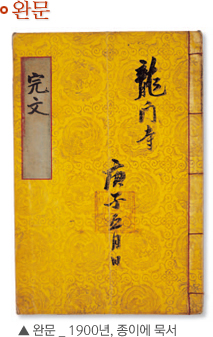 완문
完文
龍門寺
庚子五月日
▲ 완문 _ 1900년, 종이에 묵서